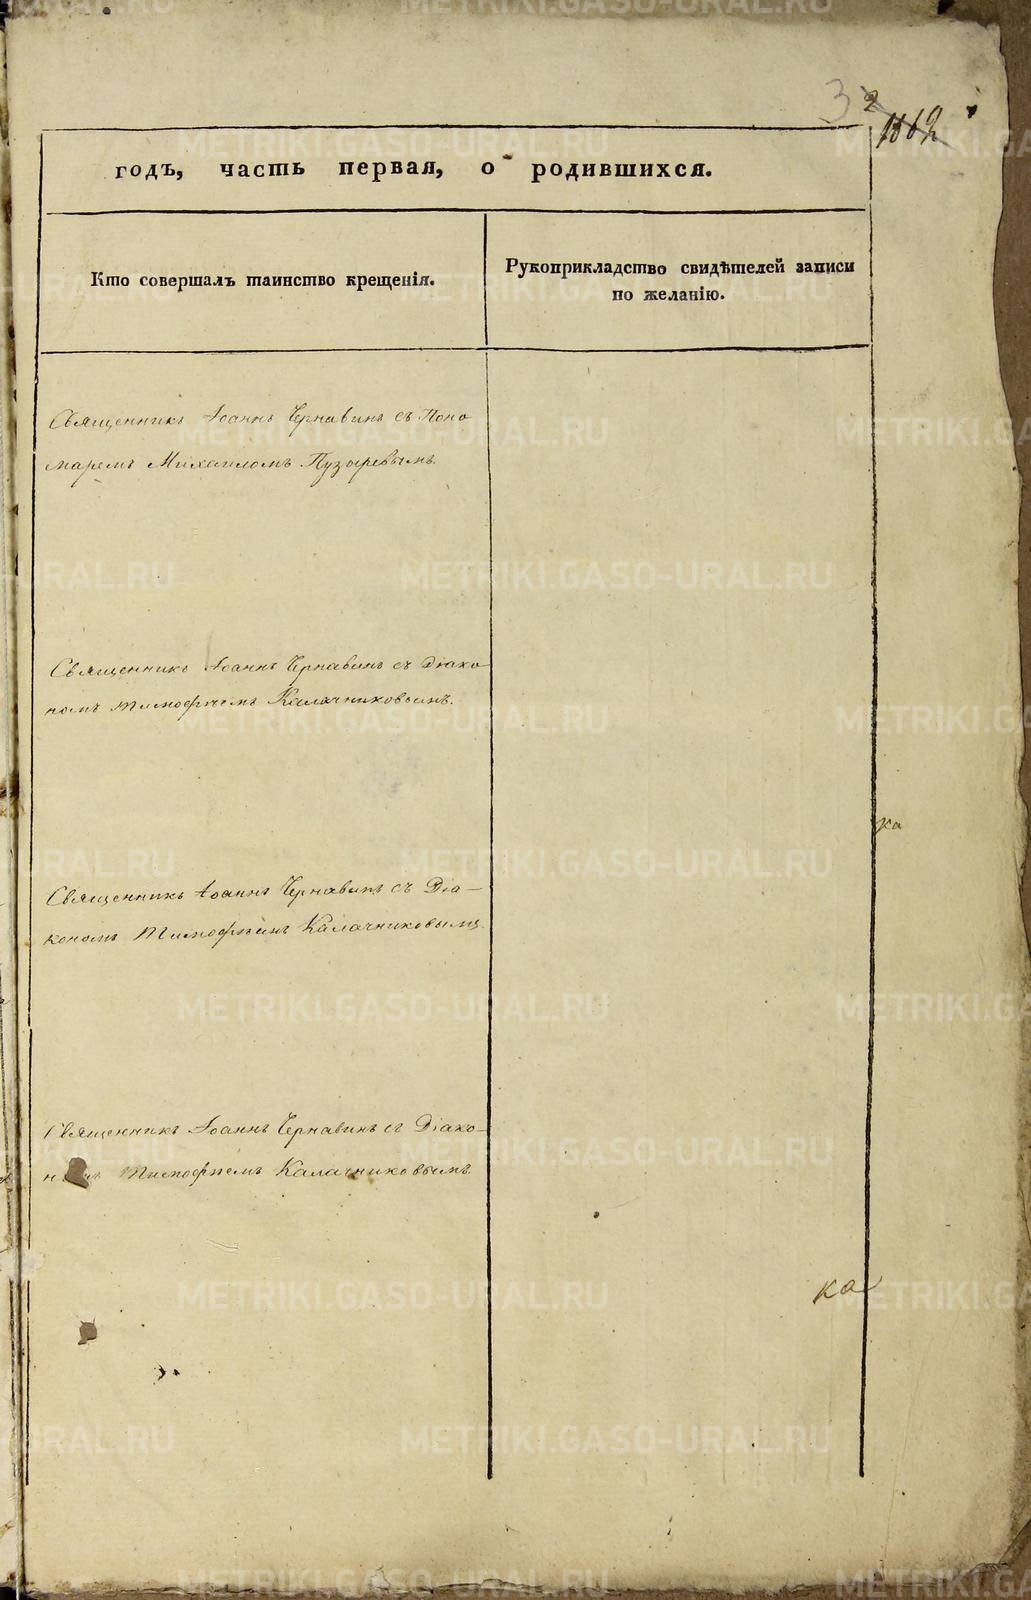 3 2
1862
годъ, часть первая, о родившихся.
Кто совершалъ таинство крещенія.
Рукоприкладство свидѣтелей записи
по желанію.
Священникъ Іоаннъ Чернавинъ съ Поно
маремъ Михаиломъ Пузыревымъ.
Священникъ Іоаннъ Чернавинъ съ Діако-
номъ Тимофѣемъ Калачниковымъ.
ка
Священникъ Іоаннъ Чернавинъ съ Діа-
кономъ Тимофѣемъ Калачниковымъ.
Священникъ Іоаннъ Чернавинъ съ Діако-
номъ Тимофѣемъ Калачниковымъ.
ка
METRIKI.GASO-URAL.RU